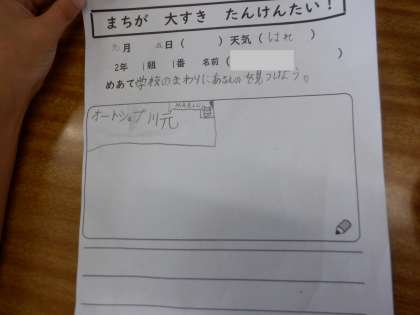 まちが 大すき たんけんたい!
九月 五日( )天気(はれ )
2年 1組 1番 名前( )
めあて学校のまわりにあるものを見つけよう。
オートショプ川元